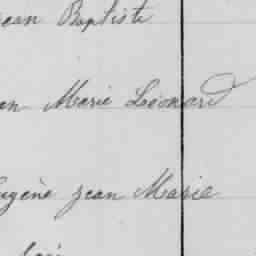 Jean Baptiste
en Marie Léonard
Eugène Jean Marie